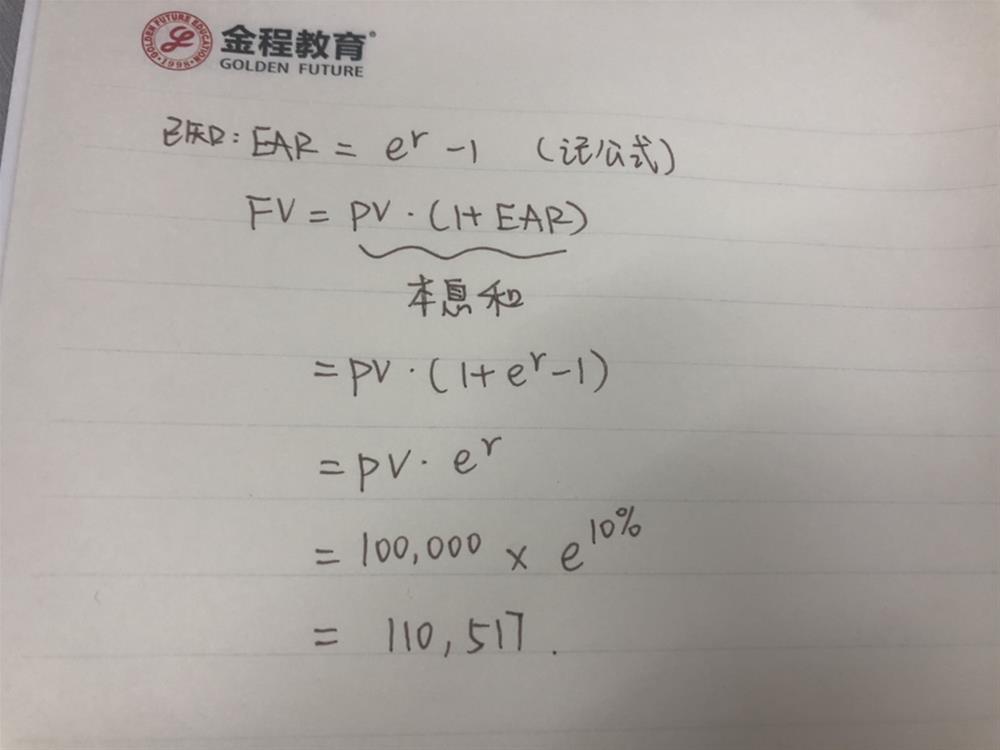 GOLDEN FUTURE EDUCATION
·1998·
金程教育®
GOLDEN FUTURE
已知: EAR = eʳ - 1 (记公式)
FV = PV · (1+ EAR)
本息和
= PV · (1+eʳ-1)
= PV · eʳ
= 100,000 × e^10%
= 110,517.